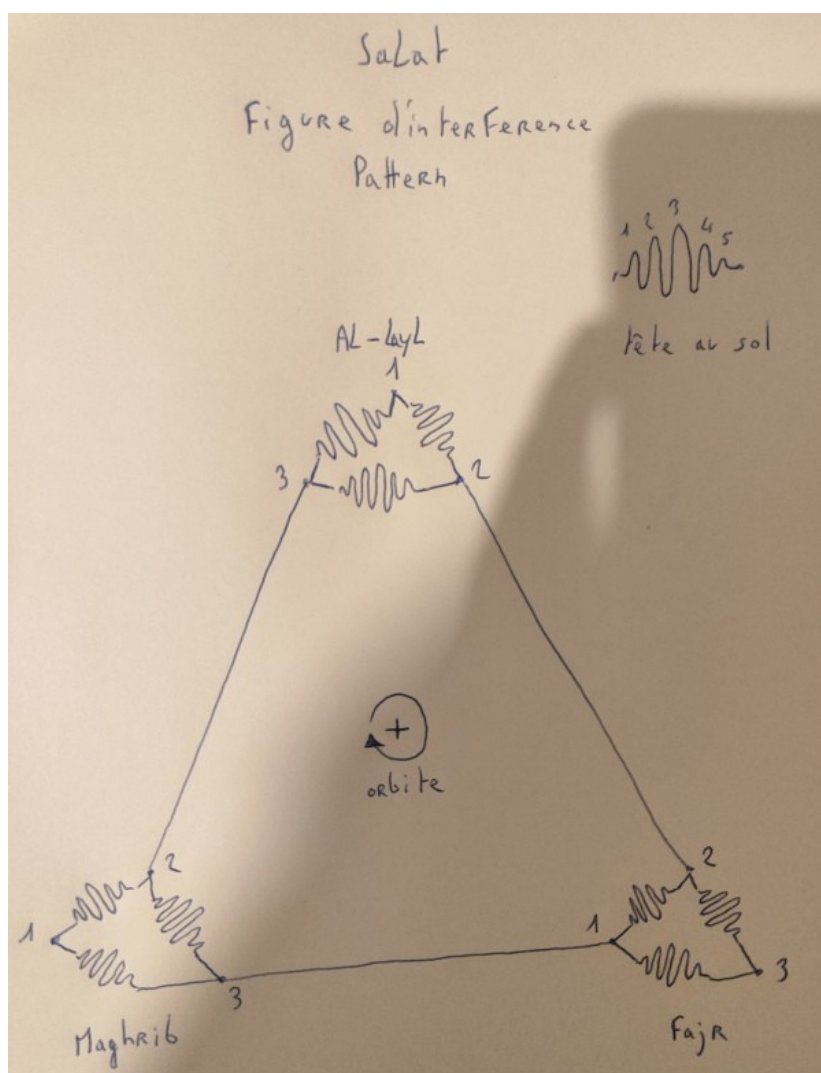 SaLat
Figure d'interference
Pattern
1 2 3 4 5
tête au sol
AL-LayL
1
3 2
orbite
2 2
1 1
3 3
Maghrib FajR